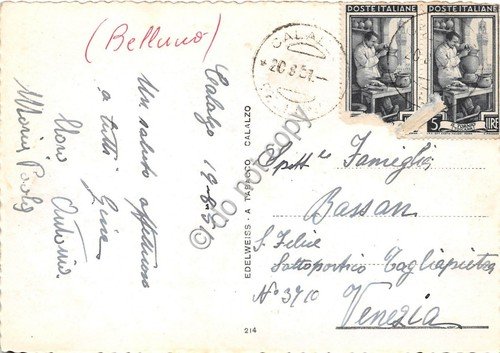 (Belluno)
Calalzo 19-8-51
Un saluto affettuoso
a tutti
Gina
Antonio
Maria Paola
EDELWEISS - A TABACCO CALALZO
214
© do not copy
CALALZO
20.8.51.-
POSTE ITALIANE
POSTE ITALIANE
5
LIRE
Spett.le Famiglia
Bassan
S. Felice
Sottoportico Tagliapietra
N° 3710
Venezia